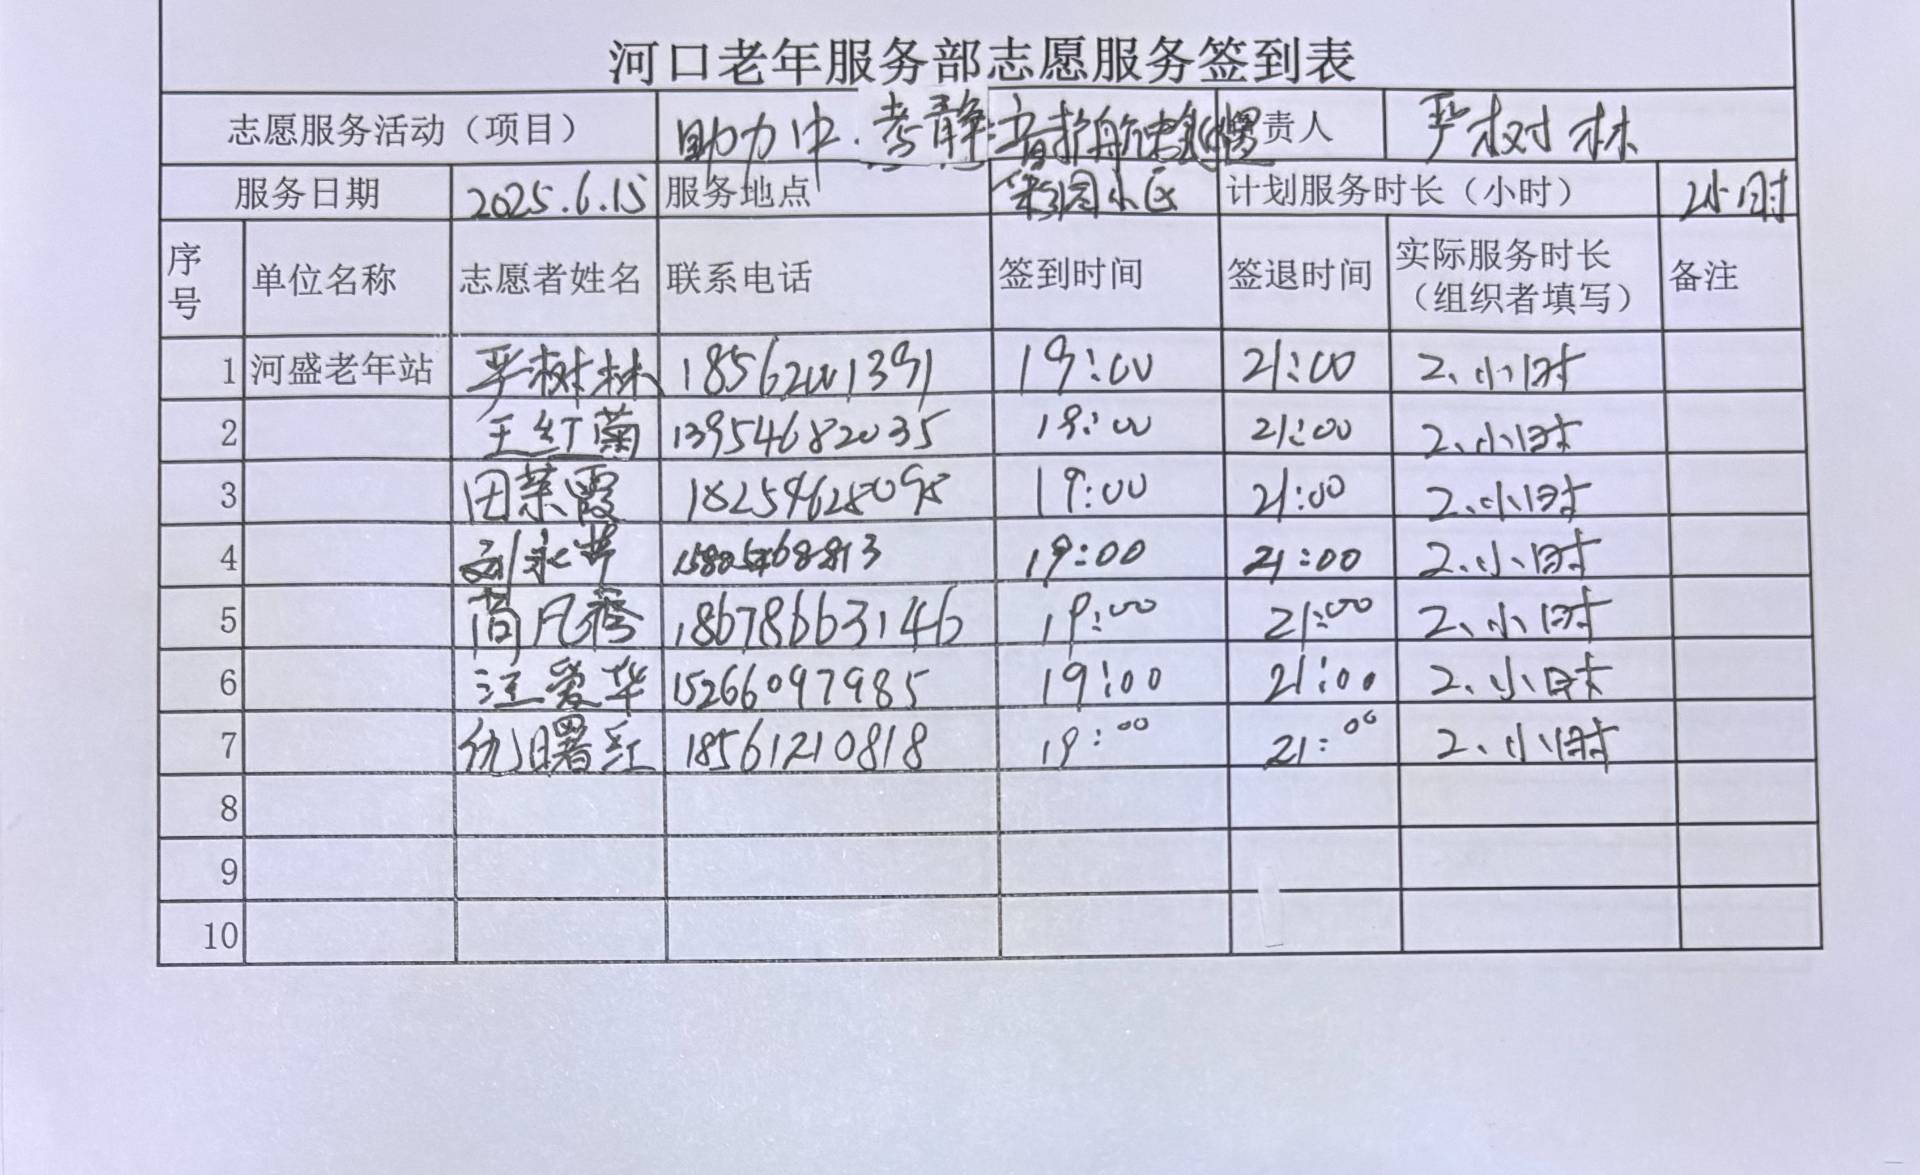 河口老年服务部志愿服务签到表
志愿服务活动（项目） 助力中.考静音护航 责人 严树林
服务日期 2025.6.15 服务地点 小区 计划服务时长（小时） 2小时
序号 单位名称 志愿者姓名 联系电话 签到时间 签退时间 实际服务时长（组织者填写） 备注
1 河盛老年站 严树林 18562001391 19:00 21:00 2、小时
2 王红菊 13954682035 19:00 21:00 2、小时
3 田荣霞 18254628095 19:00 21:00 2、小时
4 刘永芹 19:00 21:00 2、小时
5 18678663146 19:00 21:00 2、小时
6 汪爱华 15266097985 19:00 21:00 2、小时
7 曙红 18561210818 19:00 21:00 2、小时
8
9
10